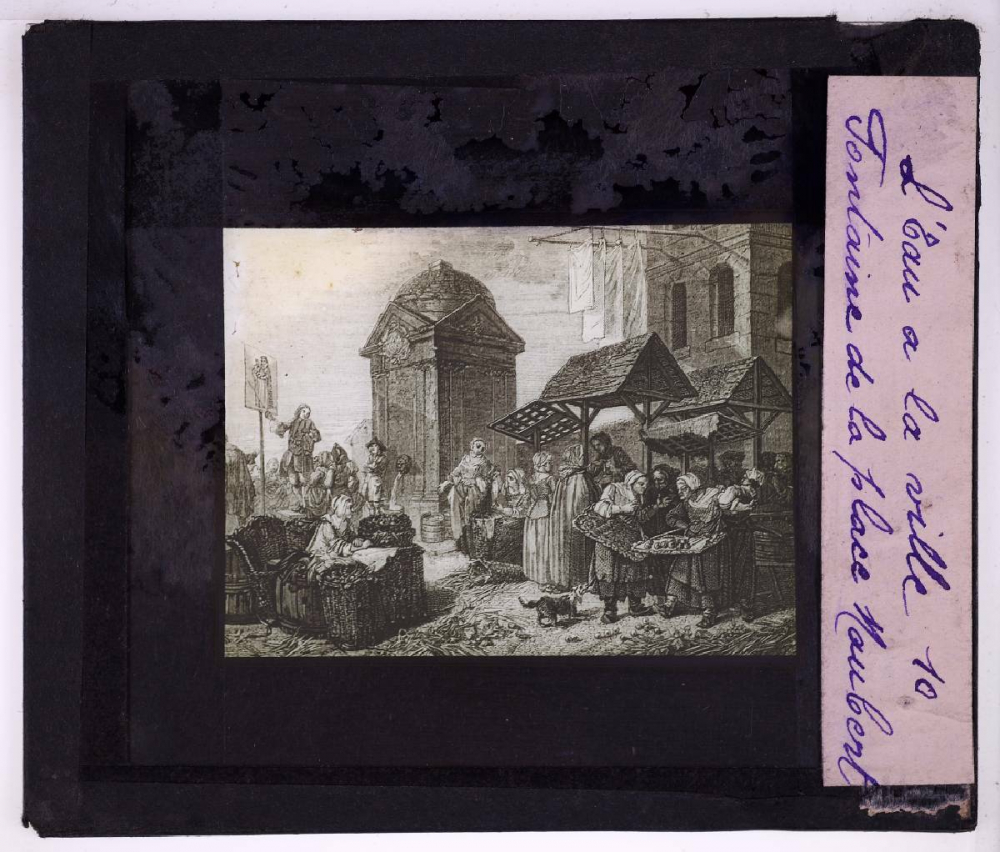 L'Eau a la ville 10
Fontaine de la place Maubert